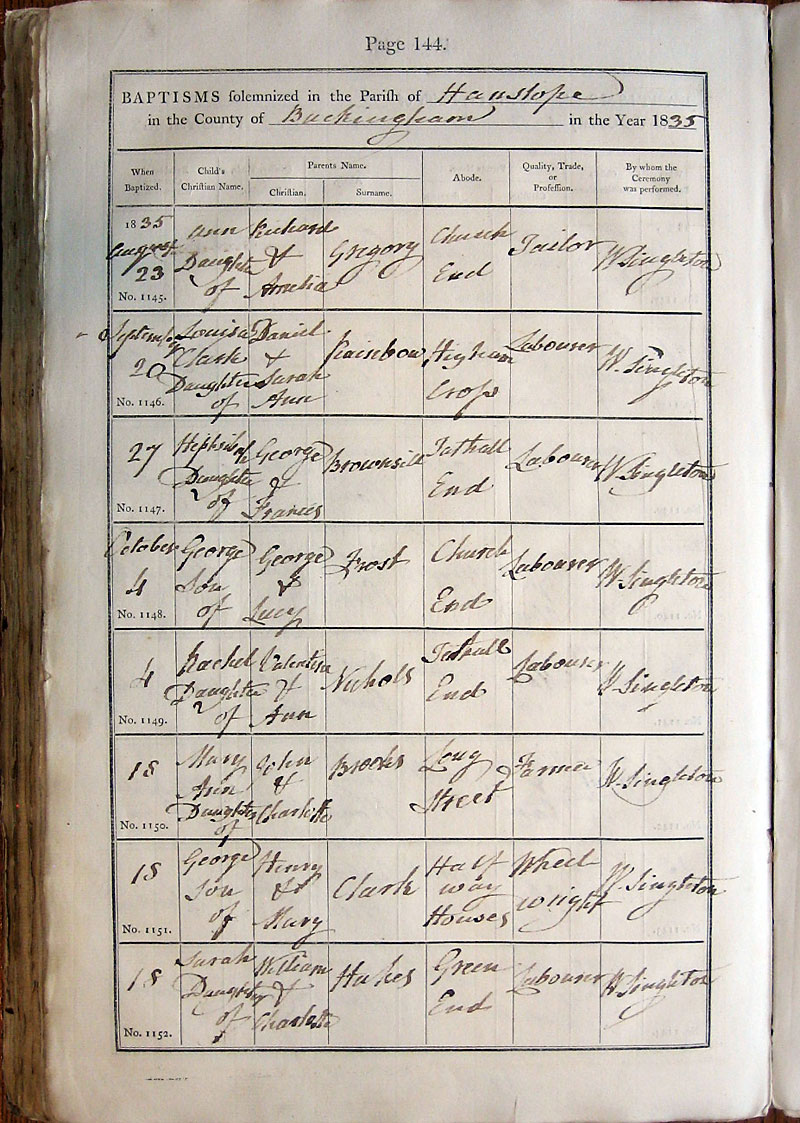 Page 144.
BAPTISMS solemnized in the Parish of Hanslope
in the County of Buckingham in the Year 1835
When Baptized. Child's Christian Name. Parents Name. Abode. Quality, Trade, or Profession. By whom the Ceremony was performed.
Christian. Surname.
1835 Ann Richard Gregory Church Tailor W Singleton
August Daughter & End
23 of Amelia
No. 1145.
September Louisa Daniel Rainbow Higham Labourer W. Singleton
20 Clark & Cross
Daughter Sarah
of Ann
No. 1146.
27 Hephzibah George Brownsill Tathall Labourer W Singleton
Daughter & End
of Frances
No. 1147.
October George George Frost Church Labourer W. Singleton
4 Son & End
of Lucy
No. 1148.
4 Rachel Valentine Nichols Tathall Labourer W Singleton
Daughter & End
of Ann
No. 1149.
18 Mary John Brooks Long Farmer W. Singleton
Ann & Street
Daughter Charlotte
of
No. 1150.
18 George Henry Clark Half Wheel W Singleton
Son & way wright
of Mary Houses
No. 1151.
18 Sarah William Hakes Green Labourer W Singleton
Daughter & End
of Charlotte
No. 1152.